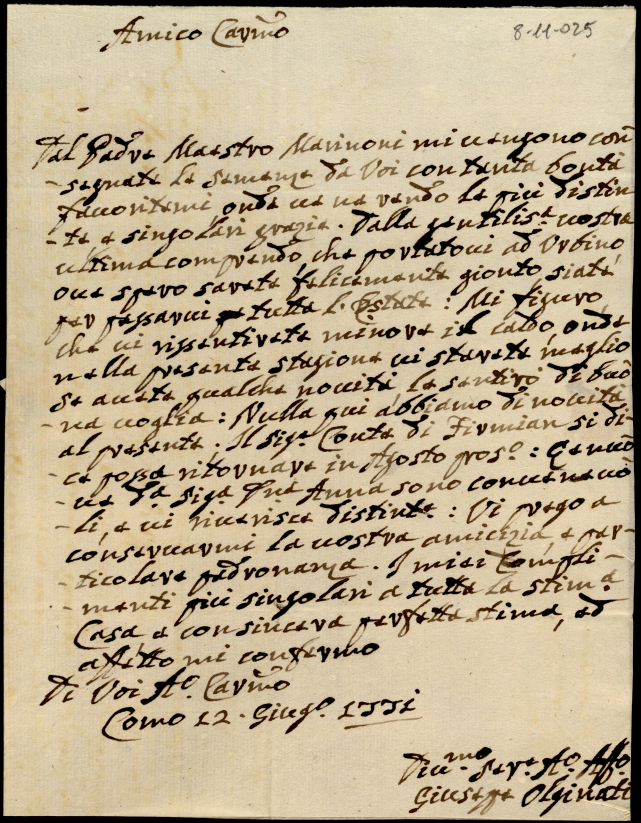 Amico Carmo
8-11-025
Dal Padre Maestro Marinoni mi vengono con
-segnate le semenze da Voi con tanta bontà
favoritemi onde ve ne rendo le più distin
-te, e singolari grazie. Dalla gentilisa vostra
ultima comprendo, che portatovi ad Urbino
ove spero sarete felicemente gionto, siate
per passarvi tutta l'Estate: Mi figuro,
che vi rissentirete minore il caldo, onde
nella presente stagione vi starete meglio
Se avete qualche novità la sentirò di buo
na voglia: Nulla qui abbiamo di novità
al presente. Il sigr Conte di Firmian si di-
-ce possa ritornare in Agosto pros.o:
-ve da siga Anna sono
-li, e vi riverisce distinte:: Vi prego a
conservarmi la vostra amicizia, e par-
-ticolare padronanza. I miei Compli-
-menti più singolari a tutta la stima
Casa e con sincera perfetta stima, ed
affetto mi confermo
Di Voi Ao. Carmo
Como 12. Giugo. 1771
Divmo. Serve Ao. Affo
Giuseppe Olginati